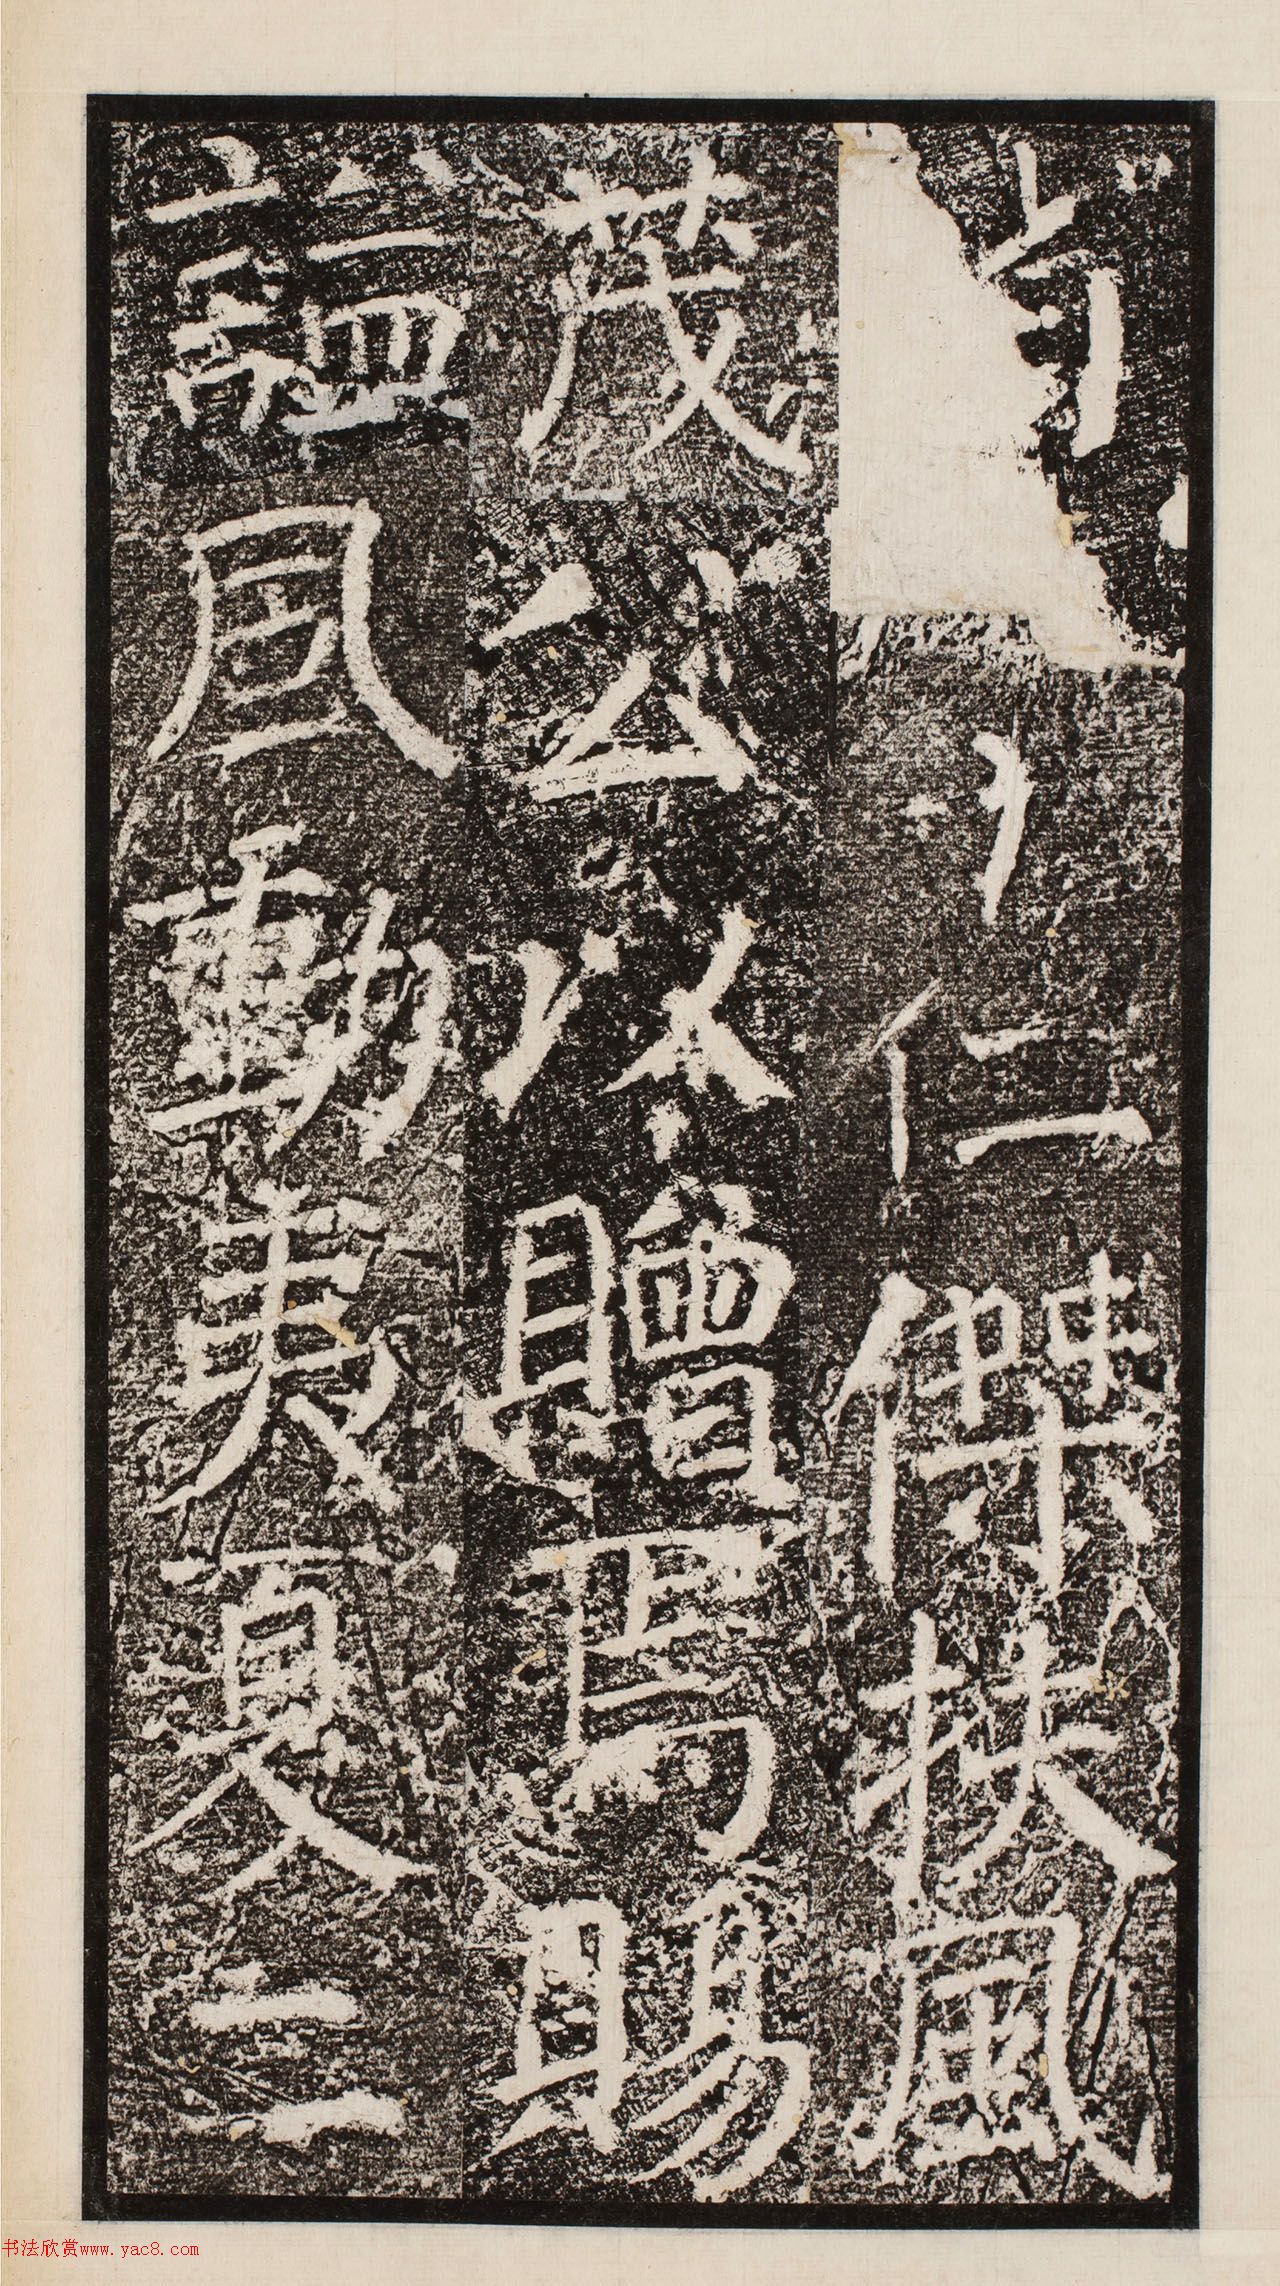 仁傑扶風
茂公以贈焉賜
謚風動夷夏二
书法欣赏www.yac8.com